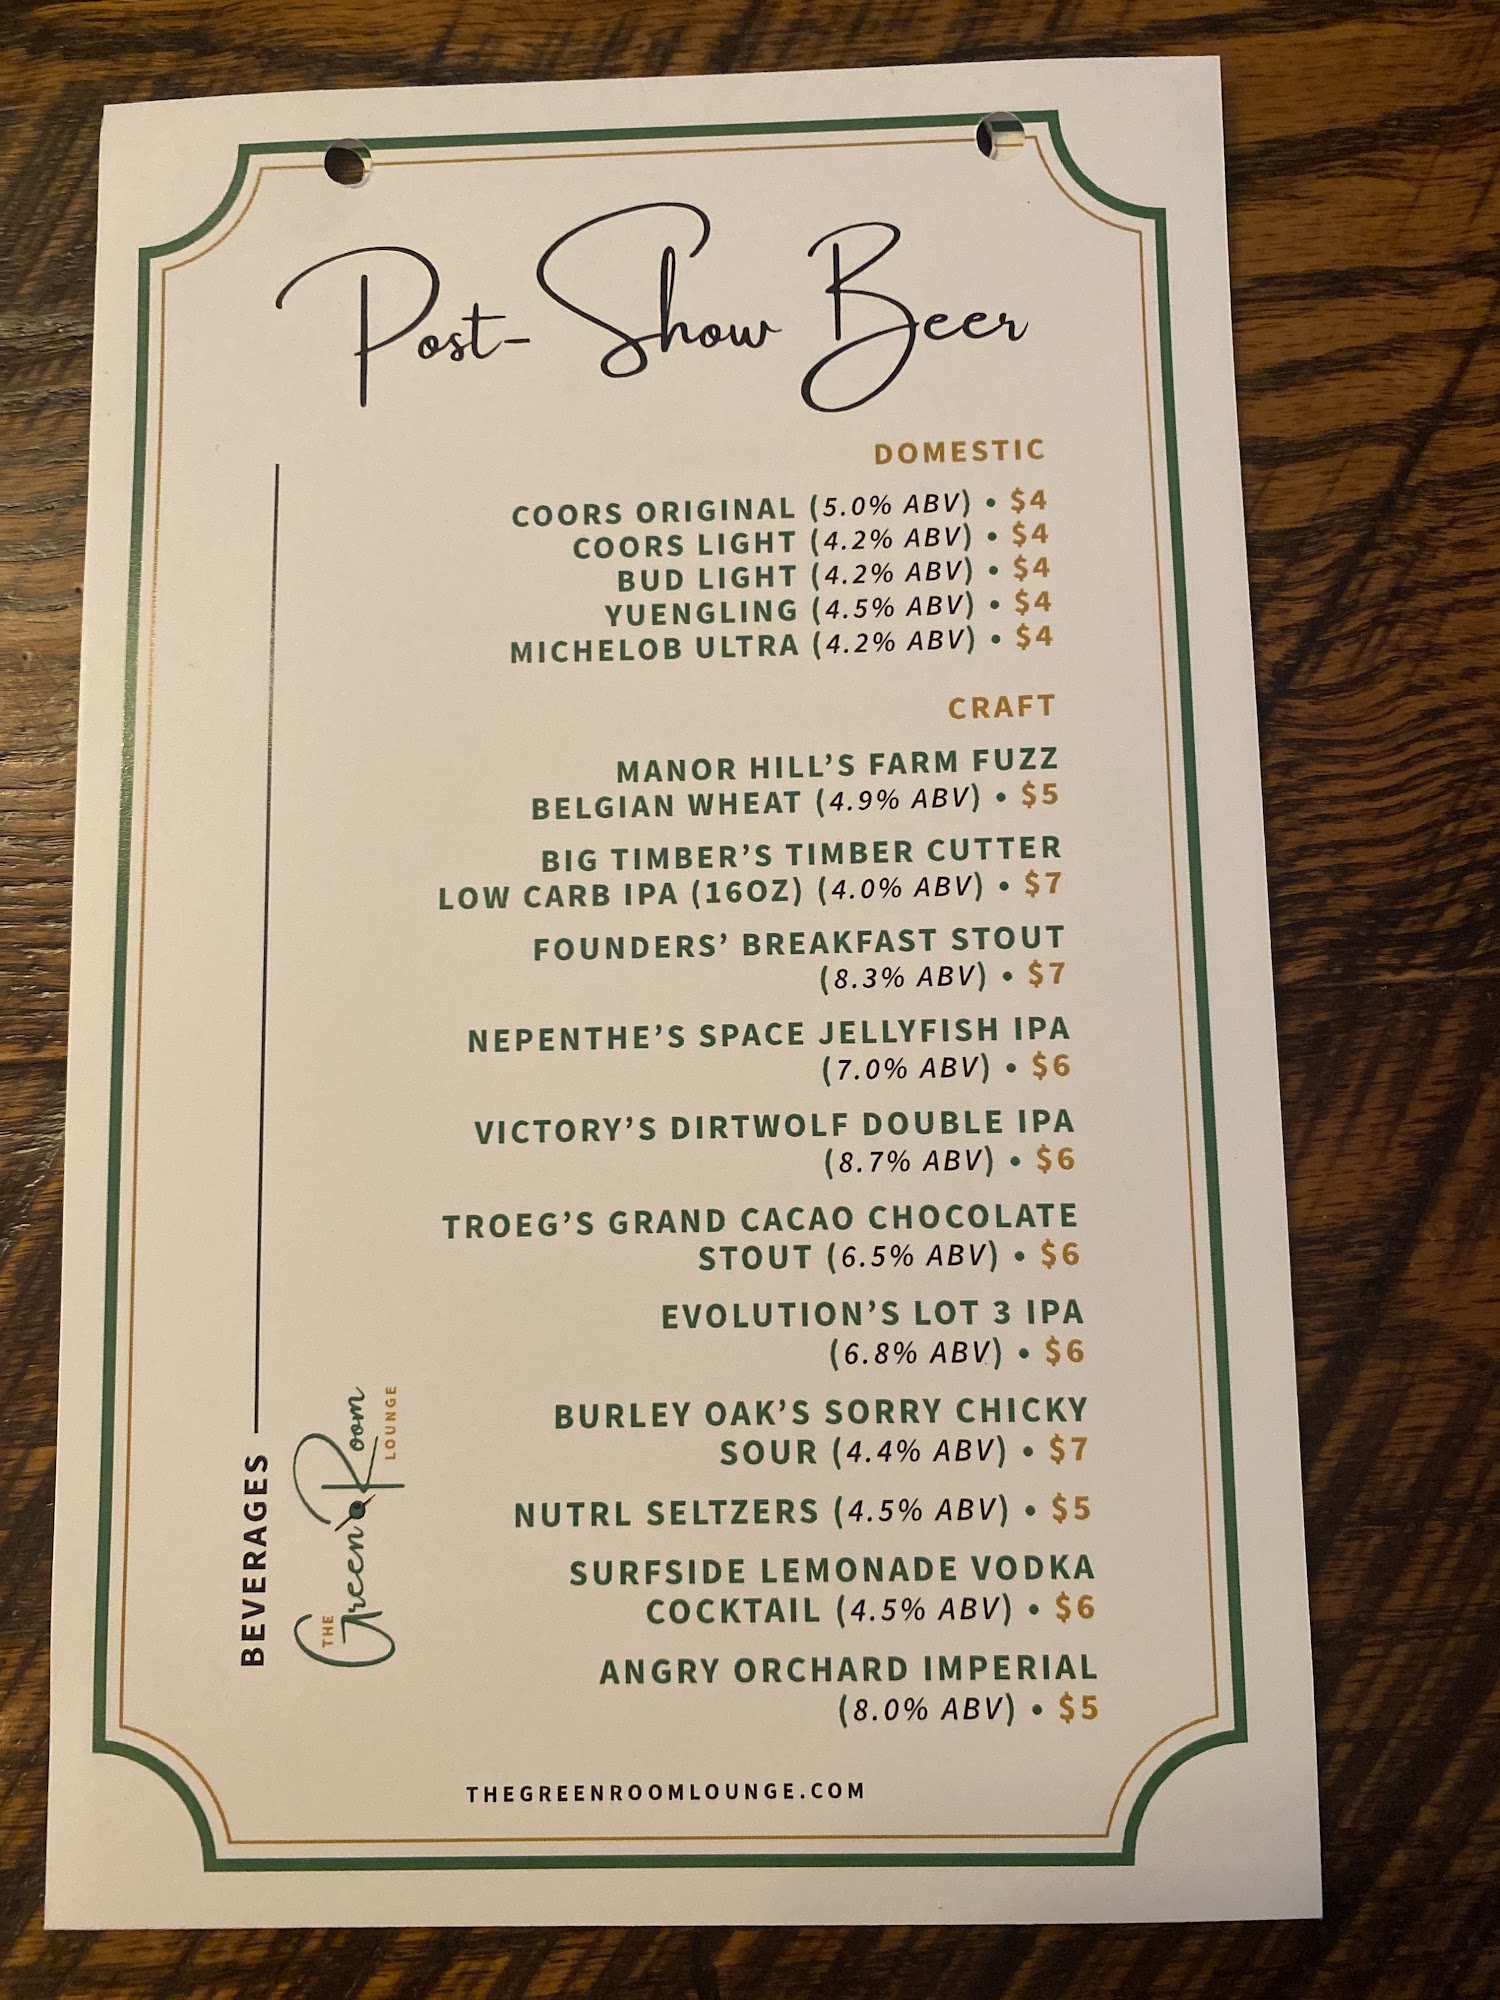 Post-Show Beer
DOMESTIC
COORS ORIGINAL (5.0% ABV) • $4
COORS LIGHT (4.2% ABV) • $4
BUD LIGHT (4.2% ABV) • $4
YUENGLING (4.5% ABV) • $4
MICHELOB ULTRA (4.2% ABV) • $4
CRAFT
MANOR HILL’S FARM FUZZ
BELGIAN WHEAT (4.9% ABV) • $5
BIG TIMBER’S TIMBER CUTTER
LOW CARB IPA (16OZ) (4.0% ABV) • $7
FOUNDERS’ BREAKFAST STOUT
(8.3% ABV) • $7
NEPENTHE’S SPACE JELLYFISH IPA
(7.0% ABV) • $6
VICTORY’S DIRTWOLF DOUBLE IPA
(8.7% ABV) • $6
TROEG’S GRAND CACAO CHOCOLATE
STOUT (6.5% ABV) • $6
EVOLUTION’S LOT 3 IPA
(6.8% ABV) • $6
BURLEY OAK’S SORRY CHICKY
SOUR (4.4% ABV) • $7
NUTRL SELTZERS (4.5% ABV) • $5
SURFSIDE LEMONADE VODKA
COCKTAIL (4.5% ABV) • $6
ANGRY ORCHARD IMPERIAL
(8.0% ABV) • $5
BEVERAGES
THE
Green Room
LOUNGE
THEGREENROOMLOUNGE.COM